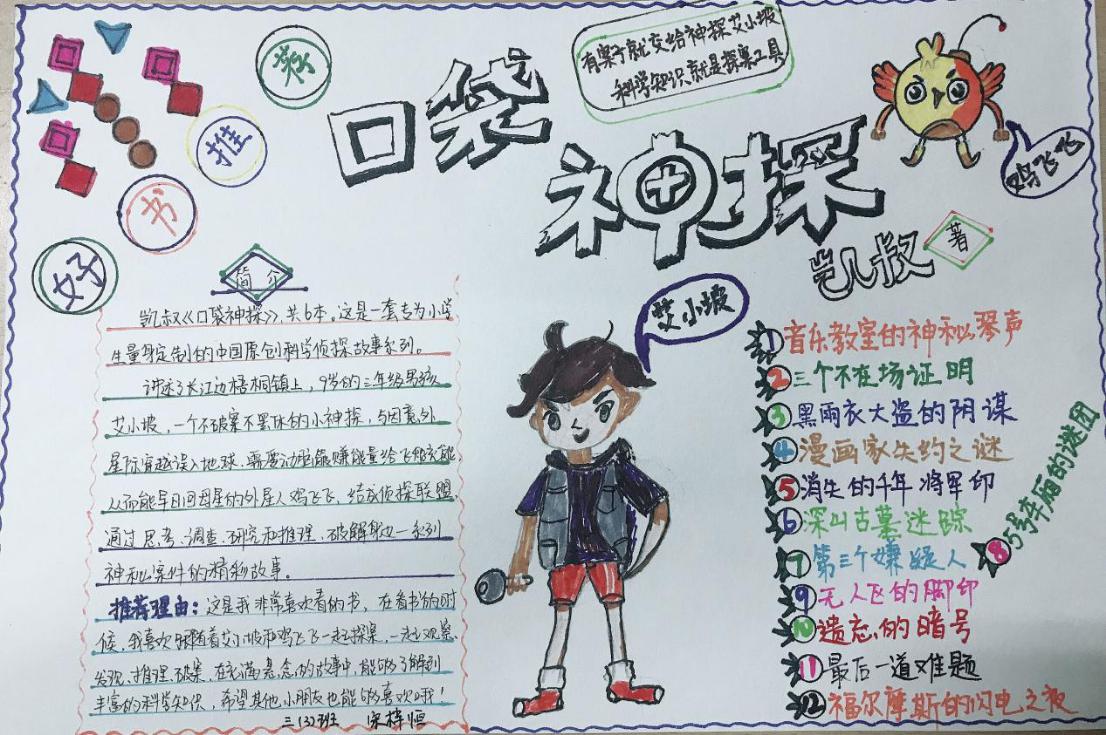 好书推荐
口袋神探
有案子就交给神探艾小坡
科学知识就是探案工具
鸡飞飞
凯叔 著
艾小坡
简介
凯叔《口袋神探》,共6本。这是一套专为小学
生量身定制的中国原创科学侦探故事系列。
讲述了长江边梧桐镇上,9岁的三年级男孩
艾小坡,一个不破案不罢休的小神探,与因意外
星际穿越误入地球、需要动脑能赚能量给飞船充能
从而能早日回母星的外星人鸡飞飞,结成侦探联盟,
通过思考、调查、研究和推理、破解身边一系列
神秘案件的精彩故事。
推荐理由:这是我非常喜欢看的书,在看书的时
候,我喜欢跟随着艾小坡和鸡飞飞一起探案,一起观察、
发现、推理、破案,在充满悬念的故事中,能够了解到
丰富的科学知识,希望其他小朋友也能够喜欢哦!
三(3)班
1 音乐教室的神秘琴声
2 三个不在场证明
3 黑雨衣大盗的阴谋
4 漫画家失约之谜
5 消失的千年将军印
6 深山古墓迷踪
7 第三个嫌疑人
8 5号车厢的谜团
9 无人区的脚印
10 遗忘的暗号
11 最后一道难题
12 福尔摩斯的闪电之夜